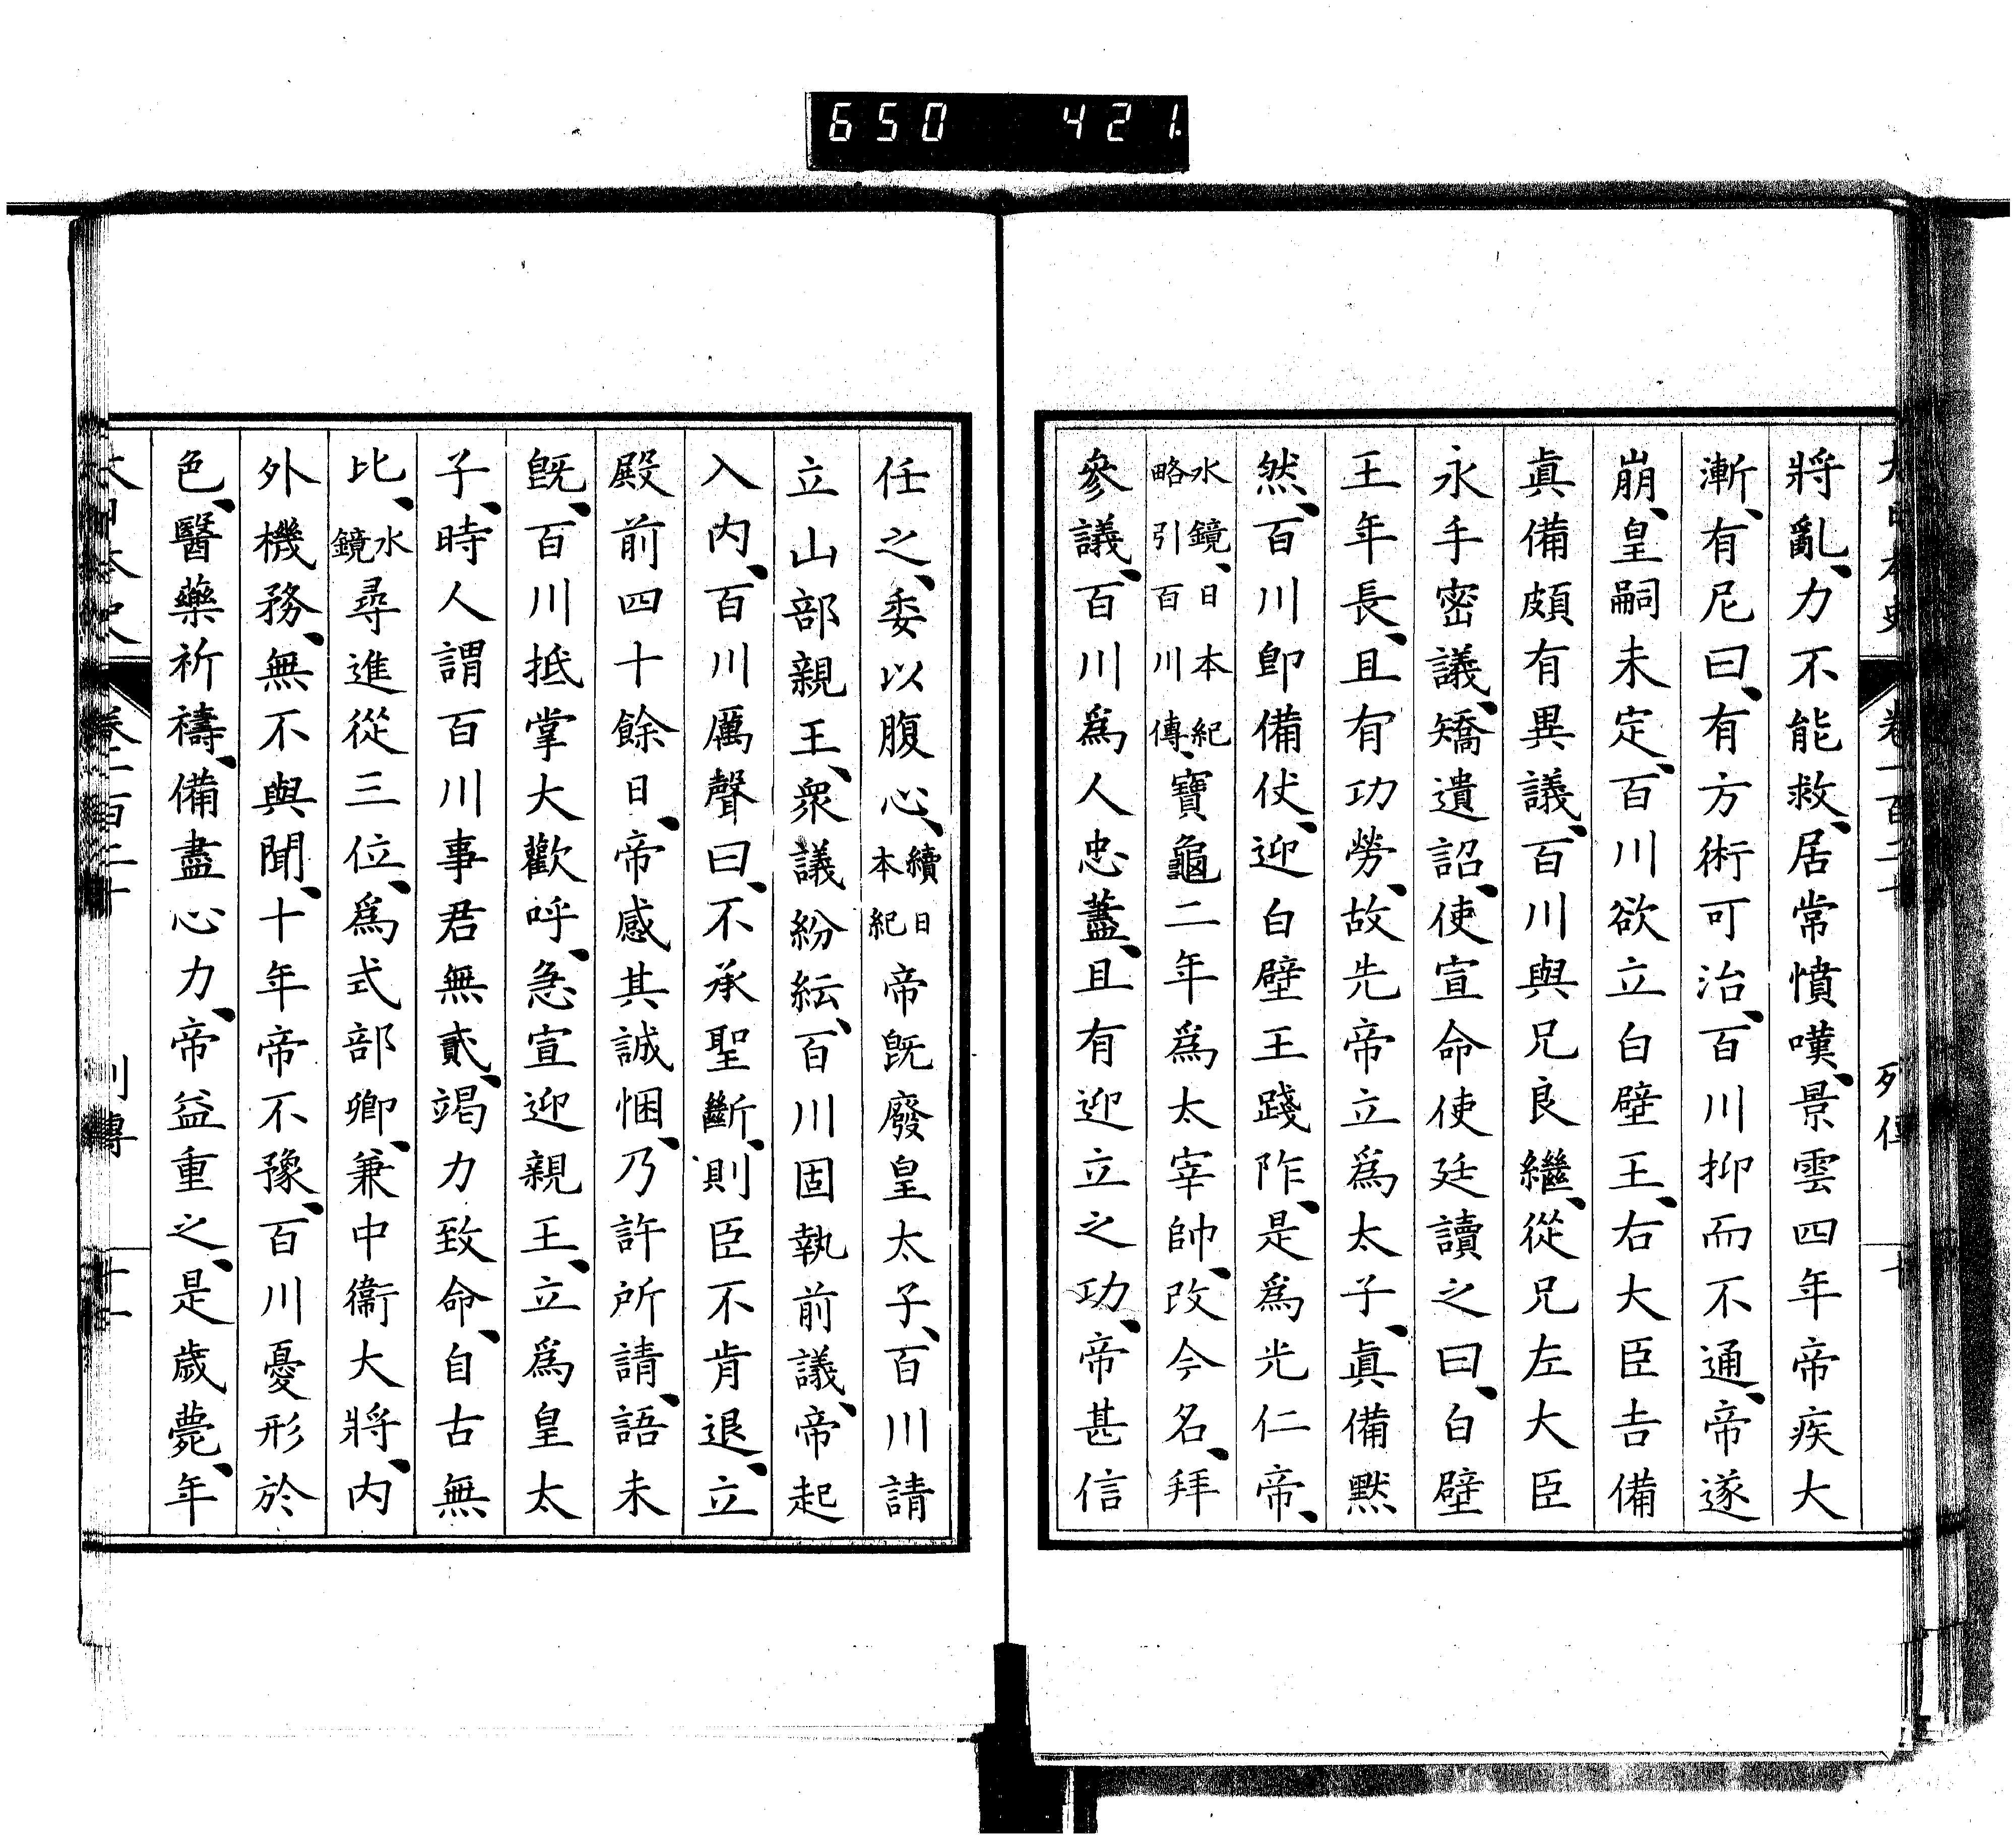 650 421.
大日本史 卷一百二十 列傳 十
將亂、力不能救、居常憤嘆、景雲四年帝疾大
漸、有尼曰、有方術可治、百川抑而不通、帝遂
崩、皇嗣未定、百川欲立白壁王、右大臣吉備
眞備頗有異議、百川與兄良繼、從兄左大臣
永手密議、矯遺詔、使宣命使廷讀之曰、白壁
王年長、且有功勞、故先帝立爲太子、眞備黙
然、百川卽備仗、迎白壁王踐阼、是爲光仁帝、
水鏡、日本紀略引百川傳、寶龜二年爲太宰帥、改今名、拜
參議、百川爲人忠藎、且有迎立之功、帝甚信
任之、委以腹心、續日本紀帝旣廢皇太子、百川請
立山部親王、衆議紛紜、百川固執前議、帝起
入内、百川厲聲曰、不承聖斷、則臣不肯退、立
殿前四十餘日、帝感其誠悃、乃許所請、語未
旣、百川抵掌大歡呼、急宣迎親王、立爲皇太
子、時人謂百川事君無貳、竭力致命、自古無
比、水鏡尋進從三位、爲式部卿、兼中衞大將、内
外機務、無不與聞、十年帝不豫、百川憂形於
色、醫藥祈禱、備盡心力、帝益重之、是歲薨、年
大日本史 卷一百二十 列傳 十一